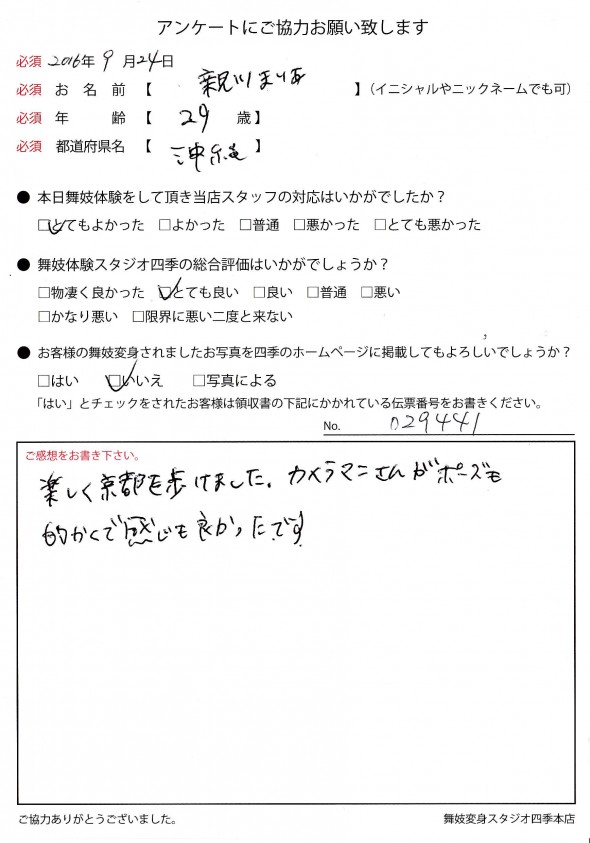 アンケートにご協力お願い致します
必須 2016年 9 月 24日
必須 お 名 前 【 親川まりあ 】（イニシャルやニックネームでも可）
必須 年 齢 【 29 歳】
必須 都道府県名 【 沖縄 】
● 本日舞妓体験をして頂き当店スタッフの対応はいかがでしたか？
□とてもよかった □よかった □普通 □悪かった □とても悪かった
● 舞妓体験スタジオ四季の総合評価はいかがでしょうか？
□物凄く良かった □とても良い □良い □普通 □悪い
□かなり悪い □限界に悪い二度と来ない
● お客様の舞妓変身されましたお写真を四季のホームページに掲載してもよろしいでしょうか？
□はい □いいえ □写真による
「はい」とチェックをされたお客様は領収書の下記にかかれている伝票番号をお書きください。
No. 029441
ご感想をお書き下さい。
楽しく京都を歩けました。カメラマンさんがポーズも
的かくで感じも良かったです
ご協力ありがとうございました。
舞妓変身スタジオ四季本店